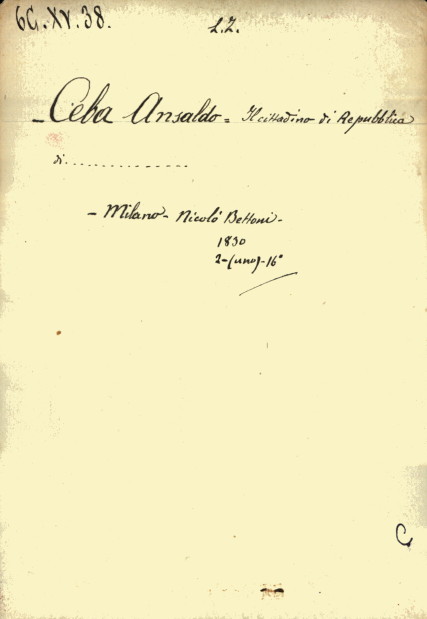 6C.XV.38.
L.Z.
- Céba Ansaldo = Il cittadino di Repubblica
di...............
- Milano - Nicolò Bettoni -
1830
2-(uno)-16°
C